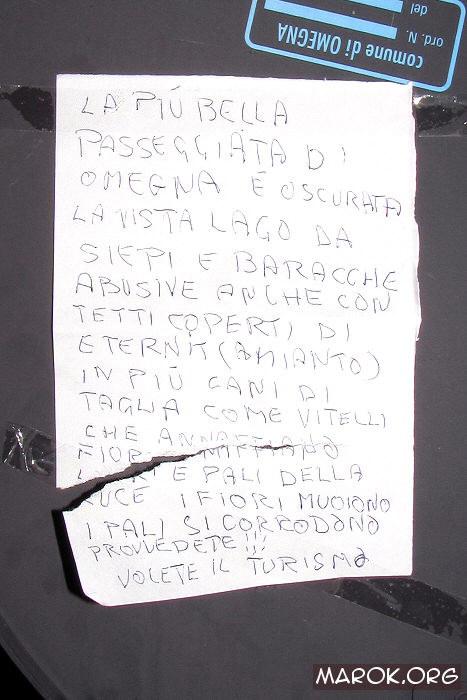 comune di OMEGNA
ord. N.
del
LA PIÚ BELLA
PASSEGGIATA DI
OMEGNA É OSCURATA
LA VISTA LAGO DA
SIEPI E BARACCHE
ABUSIVE ANCHE CON
TETTI COPERTI DI
ETERNIT (AMIANTO)
IN PIÚ CANI DI
TAGLIA COME VITELLI
CHE ANNAFFIANO
FIORI
E PALI DELLA
LUCE I FIORI MUOIONO
I PALI SI CORRODONO
PROVVEDETE!!!
VOLETE IL TURISMO
MAROK.ORG